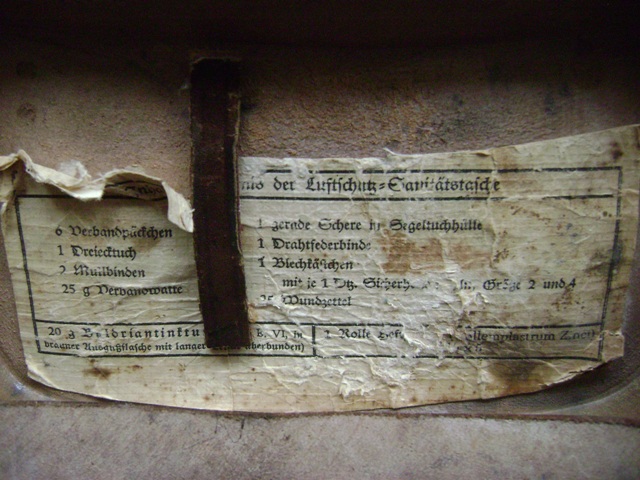 der Luftschutz-Sanitätstasche
6 Verbandpäckchen
1 Dreiecktuch
2 Mullbinden
25 g Verbandwatte
1 gerade Schere in Segeltuchhülle
1 Drahtfederbinde
1 Blechkästchen
mit je 1 Dtz. Größe 2 und 4
25 Wundzettel
20 g Baldriantinktu B. VI. in
bragner Ausgußflasche mit langer überbunden)
2 Rolle